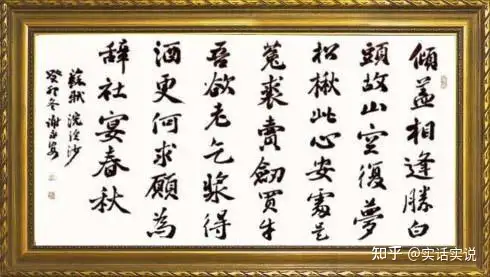 傾蓋相逢勝白
頭故山空復夢
松楸此心安處是
菟裘賣劍買牛
吾欲老乞漿得
酒更何求願為
辭社宴春秋
蘇軾浣溪沙
癸卯冬謝
知乎 @实话实说